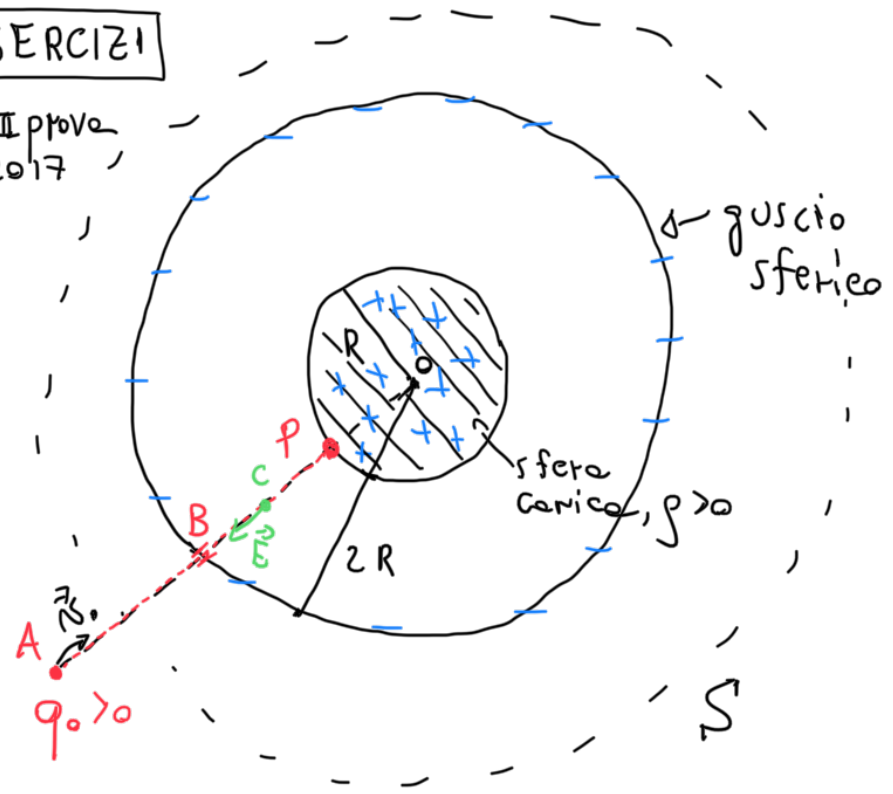 SERCIZI
II prova
2017
guscio
sferico
R
O
P
sfera
carica, ρ>0
C
B
E⃗
2R
A
q₀>0
S